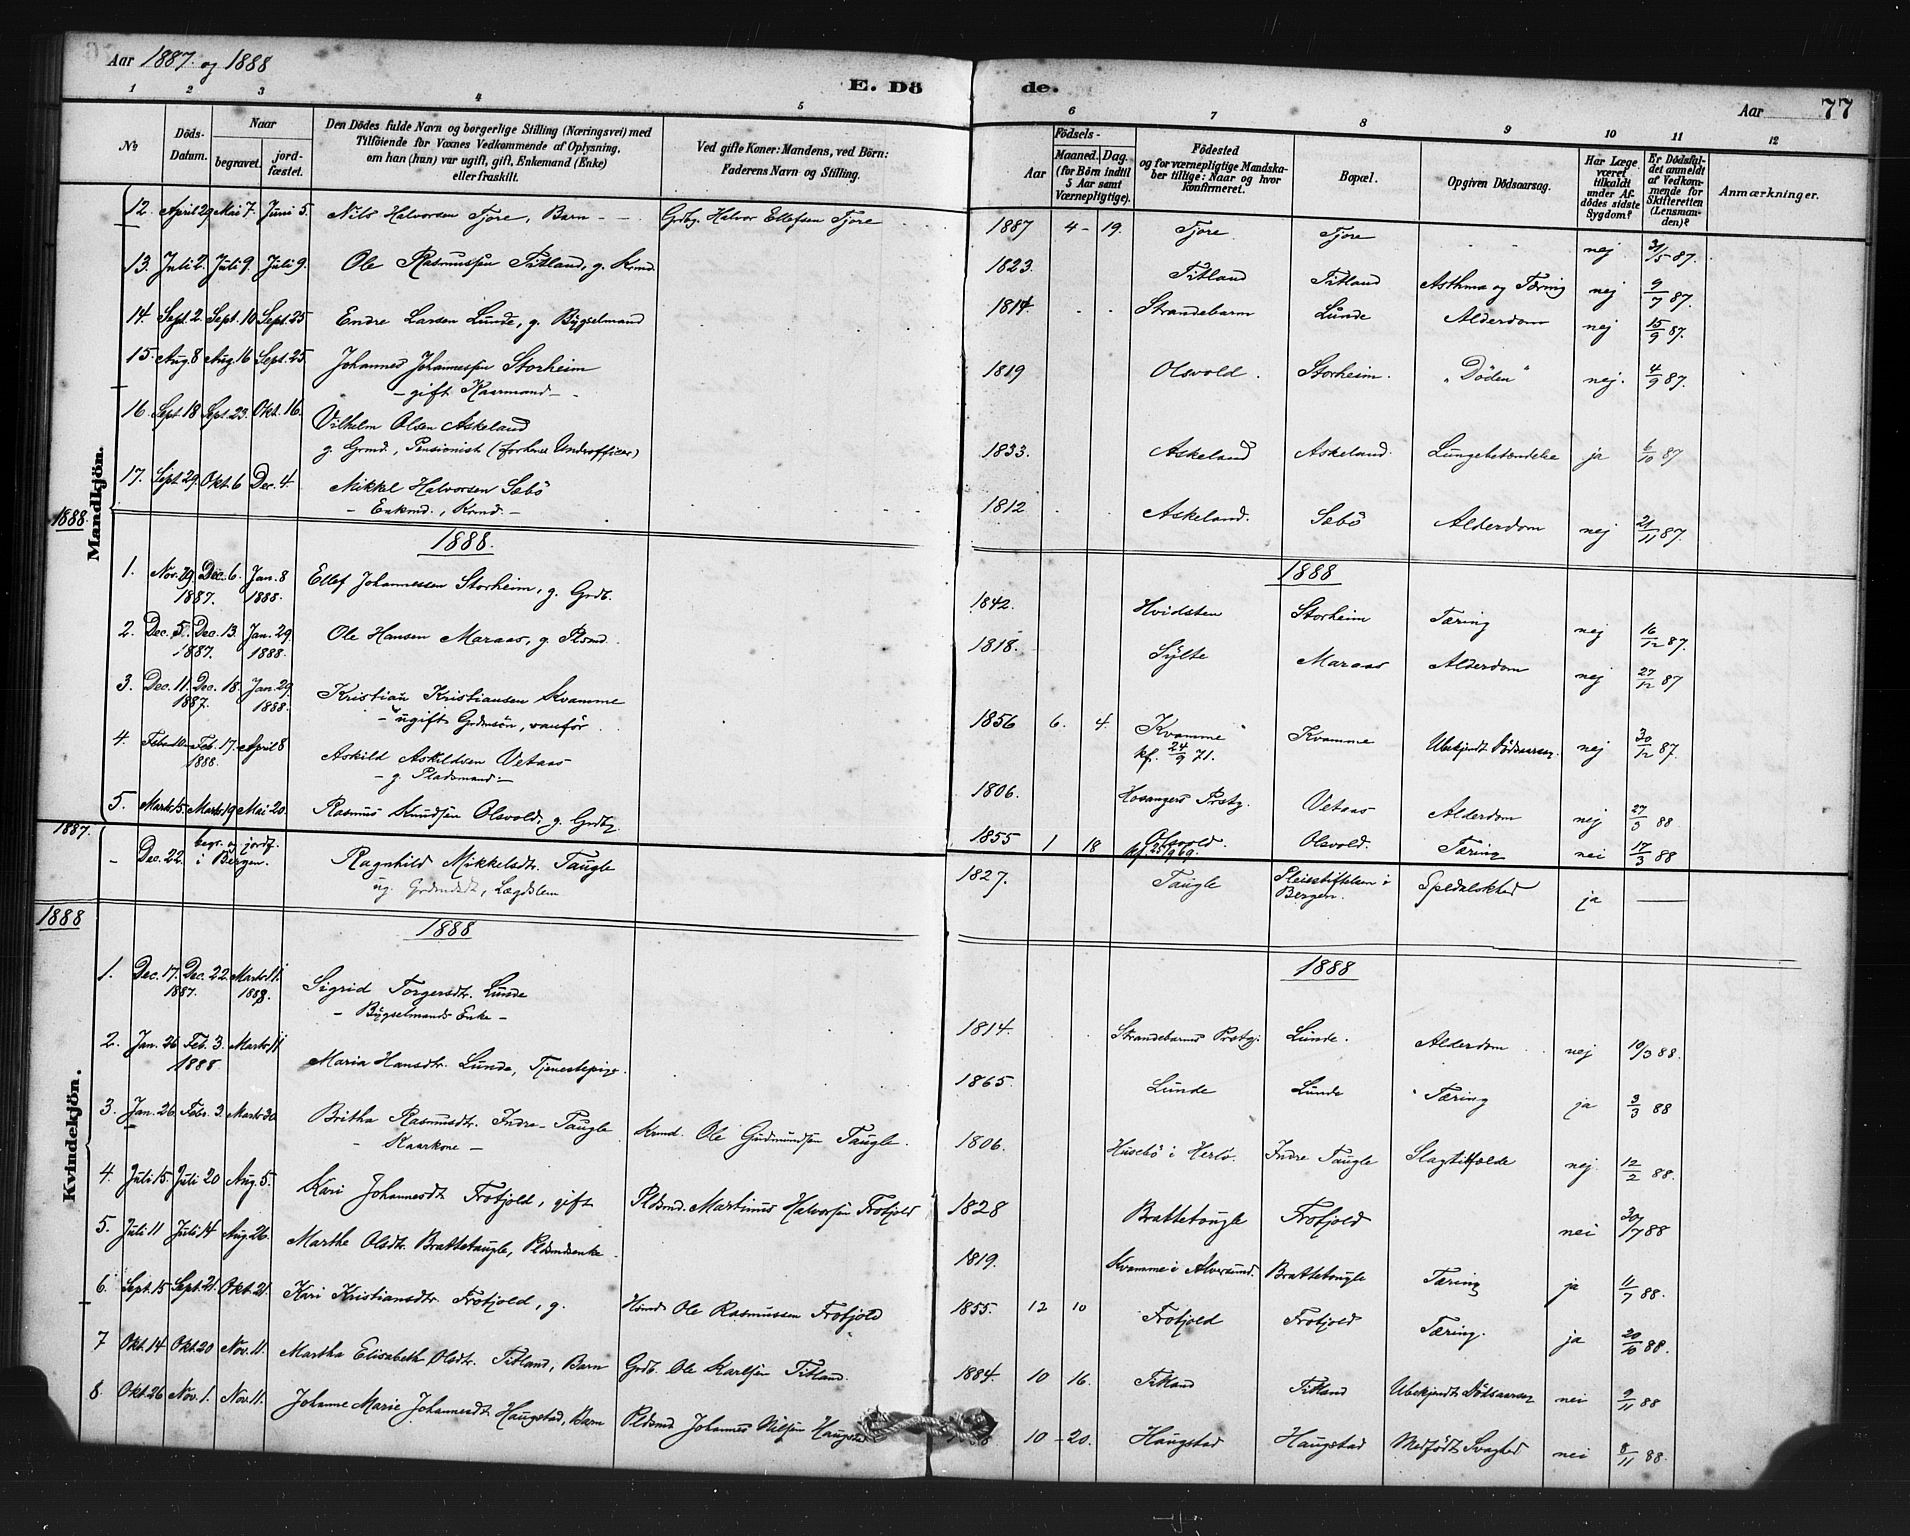 Aar 1887. og 1888
E. Döde.
Aar 77
1 2 3 4 5 6 7 8 9 10 11 12
No
Döds-Datum.
Naar
begravet.
jord-fæstet.
Den Dödes fulde Navn og borgerlige Stilling (Næringsvei) med
Tilföiende for Voxnes Vedkommende af Oplysning,
om han (hun) var ugift, gift, Enkemand (Enke)
eller fraskilt.
Ved gifte Koner: Mandens, ved Börn:
Faderens Navn og Stilling.
Födsels-
Aar
Maaned. Dag.
(for Börn indtil
5 Aar samt
Værnepligtige).
Födested
og for værnepligtige Mandska-
ber tillige: Naar og hvor
Konfirmeret.
Bopæl.
Opgiven Dödsaarsag.
Har Læge
været
tilkaldt
under Af-
dödes sidste
Sygdom?
Er Dödsfal-
det anmeldt
af Vedkom-
mende for
Skifteretten
(Lensman-
den)?
Anmærkninger.
Mandkjön.
12. April 29 Mai 7. Juni 5. Nils Halvorsen Tjore, Barn - - Grdbg. Halvor Ellefsen Tjore 1887 4 - 19. Tjore Tjore nej 31/5 87.
13. Juli 2. Juli 9. Juli 9. Ole Rasmussen Titland, g. Krmd. 1823. Titland Titland Asthma og Tæring nej 9/7 87.
14. Sept. 2. Sept. 10 Sept. 25 Endre Larsen Lunde, g. Bygselmand 1814. Strandebarm Lunde Alderdom nej 15/9 87.
15. Aug. 8 Aug. 16 Sept. 25. Johannes Johannessen Storheim
- gift Kaarmand - 1819 Olsvold. Storheim. "Döden" nej. 4/9 87.
16. Sept. 18 Sept. 23. Okt. 16. Vilhelm Olsen Askeland
g. Grmd., Pensionist (forhenv. Underofficer) 1833. Askeland Askeland. Lungebetændelse ja 6/10 87
17. Sept. 29. Okt. 6 Dec. 4. Mikkel Halvorsen Sæbö
- Enkmd., Krmd. - 1812 Askeland. Sæbö Alderdom nej 21/11 87.
1888.
1888.
1888
1. Nov. 29. Dec. 6. Jan. 8
1887. 1888. Ellef Johannessen Storheim, g. Grdb. 1842. Hvidsten Storheim Tæring nej 16/12 87.
2. Dec. 5. Dec. 13. Jan. 29.
1887. 1888. Ole Hansen Maraas, g. Plsmd. 1818. Sylte Maraas Alderdom nej 27/12 87
3. Dec. 11. Dec. 18. Jan. 29.
1887. 1888. Kristian Kristiansen Kvamme
- ugift Grdmsön, vanför. 1856 6. 4. Kvamme
kf. 24/9 71. Kvamme Ubekjendt Dödsaarsag. nej 30/12 87
4. Feb. 17. April 8
1888. Askild Askildsen Vetaas
- g. Pladsmand. - 1806. Hosangers Prstg. Vetaas Alderdom nej 27/3 88
5. Marts 15. Marts 19 Mai 20. Rasmus Knudsen Olsvold, g. Grdbg. 1855 1 18 Olsvold.
kf. 25/9 69. Olsvold. Tæring nei 17/3 88
1887.
- Dec. 22. begr. og jordf.
i Bergen. Ragnhild Mikkelsdtr. Taugle
ug. Grdmdsdt., Lægdslem 1827. Taugle Pleiestiftelsen i
Bergen. Spedalskhed ja
1888
1888
1888
Kvindekjön.
1. Dec. 17. Dec. 22. Marts 11.
1887. 1888. Sigrid Torgersdtr. Lunde
- Bygselmands Enke - 1814. Strandebarms Prstg. Lunde. Alderdom nej 10/3 88.
2. Jan. 26 Feb. 3. Marts 11
1888 Maria Hansdtr. Lunde, Tjenestepige. 1865. Lunde Lunde Tæring ja 3/3 88
3. Jan. 26. Febr. 3. Marts 30 Britha Rasmusdtr. Indre-Taugle
- Kaarkone - Krmd. Ole Gudmundsen Taugle. 1806. Husebö i Herlö. Indre Taugle Slagtilfælde nej. 12/2 88.
4. Juli 15. Juli 20 Aug. 5. Kari Johannesdt. Frotjold, gift Pldsmd. Martinus Halvorsen Frotjold 1828 Brattetaugle Frotjold nei 30/7 88
5. Juli 11 Juli 14 Aug. 26. Marthe Olsdtr. Brattetaugle, Pldsmdsenke. 1819. Kvamme i Alversund. Brattetaugle Tæring ja 11/7 88.
6. Sept. 15 Sept. 21. Okt. 21. Kari Kristiansdtr. Frotjold, g. Hsmd. Ole Rasmussen Frotjold 1855. 12 10 Frotjold Frotjold Tæring. ja 20/10 88.
7 Okt. 14 Okt. 20 Nov. 11. Martha Elisabeth Olsdtr. Titland, Barn Grdb. Ole Karlsen Titland. 1884. 10 16. Titland Titland Ubekjendt Dödsaarsag nei 9/11 88
8. Okt. 26 Nov. 1. Nov. 11. Johanne Marie Johannesdt. Haugstad, Barn Pldsmd. Johannes Nilsen Haugstad 10 - 20. Haugstad Haugstad Medfödt Svaghed nei 8/11 88